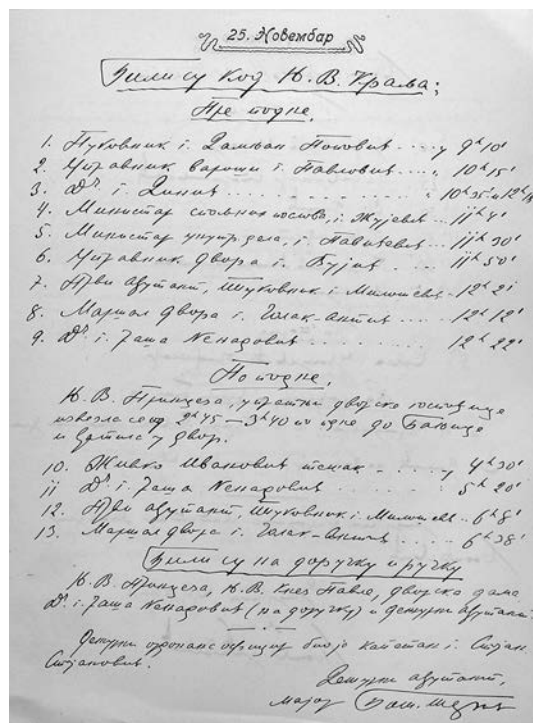 25. Новембар
Били су код Њ. В. Краља;
Пре подне.
1. Пуковник г. Дамњан Поповић .... у 9ʰ 10'
2. Управник вароши г. Павловић .... „ 10ʰ 15'
3. Dʳ. г. Динић . . . . . . . . . . „ 10ʰ 35' и 12ʰ
4. Министар спољних послова, г. Жујовић ... 11ʰ 4'
5. Министар унутр. дела, г. Павићевић ... 11ʰ 30'
6. Управник двора г. Вујић .... 11ʰ 50'
7. Први ађутант, Пуковник г. Милошевић - 12ʰ 2'
8. Маршал двора г. Чолак-Антић .... 12ʰ 12'
9. Dʳ. г. Јаша Ненадовић ....... 12ʰ 22'
По подне.
Њ. В. Принцеза, у пратњи дворске госпођице
извезла се од 2ʰ 45 – 3ʰ 40 по подне до Бањице
и вратила у двор.
10. Живко Ивановић тежак - ..... у 4ʰ 30'
11 Dʳ. г. Јаша Ненадовић ....... 5ʰ 20'
12. Први ађутант, Пуковник г. Милошевић .. 6ʰ 8'
13. Маршал двора г. Чолак-Антић .... 6ʰ 38'
Били су на доручку и ручку
Њ. В. Принцеза, Њ. В. Кнез Павле, дворска дама
Dʳ. г. Јаша Ненадовић (на доручку) и дежурни ађутант.
Дежурни ордонанс официр био је капетан г. Стојан
Стојановић.
Дежурни ађутант,
мајор